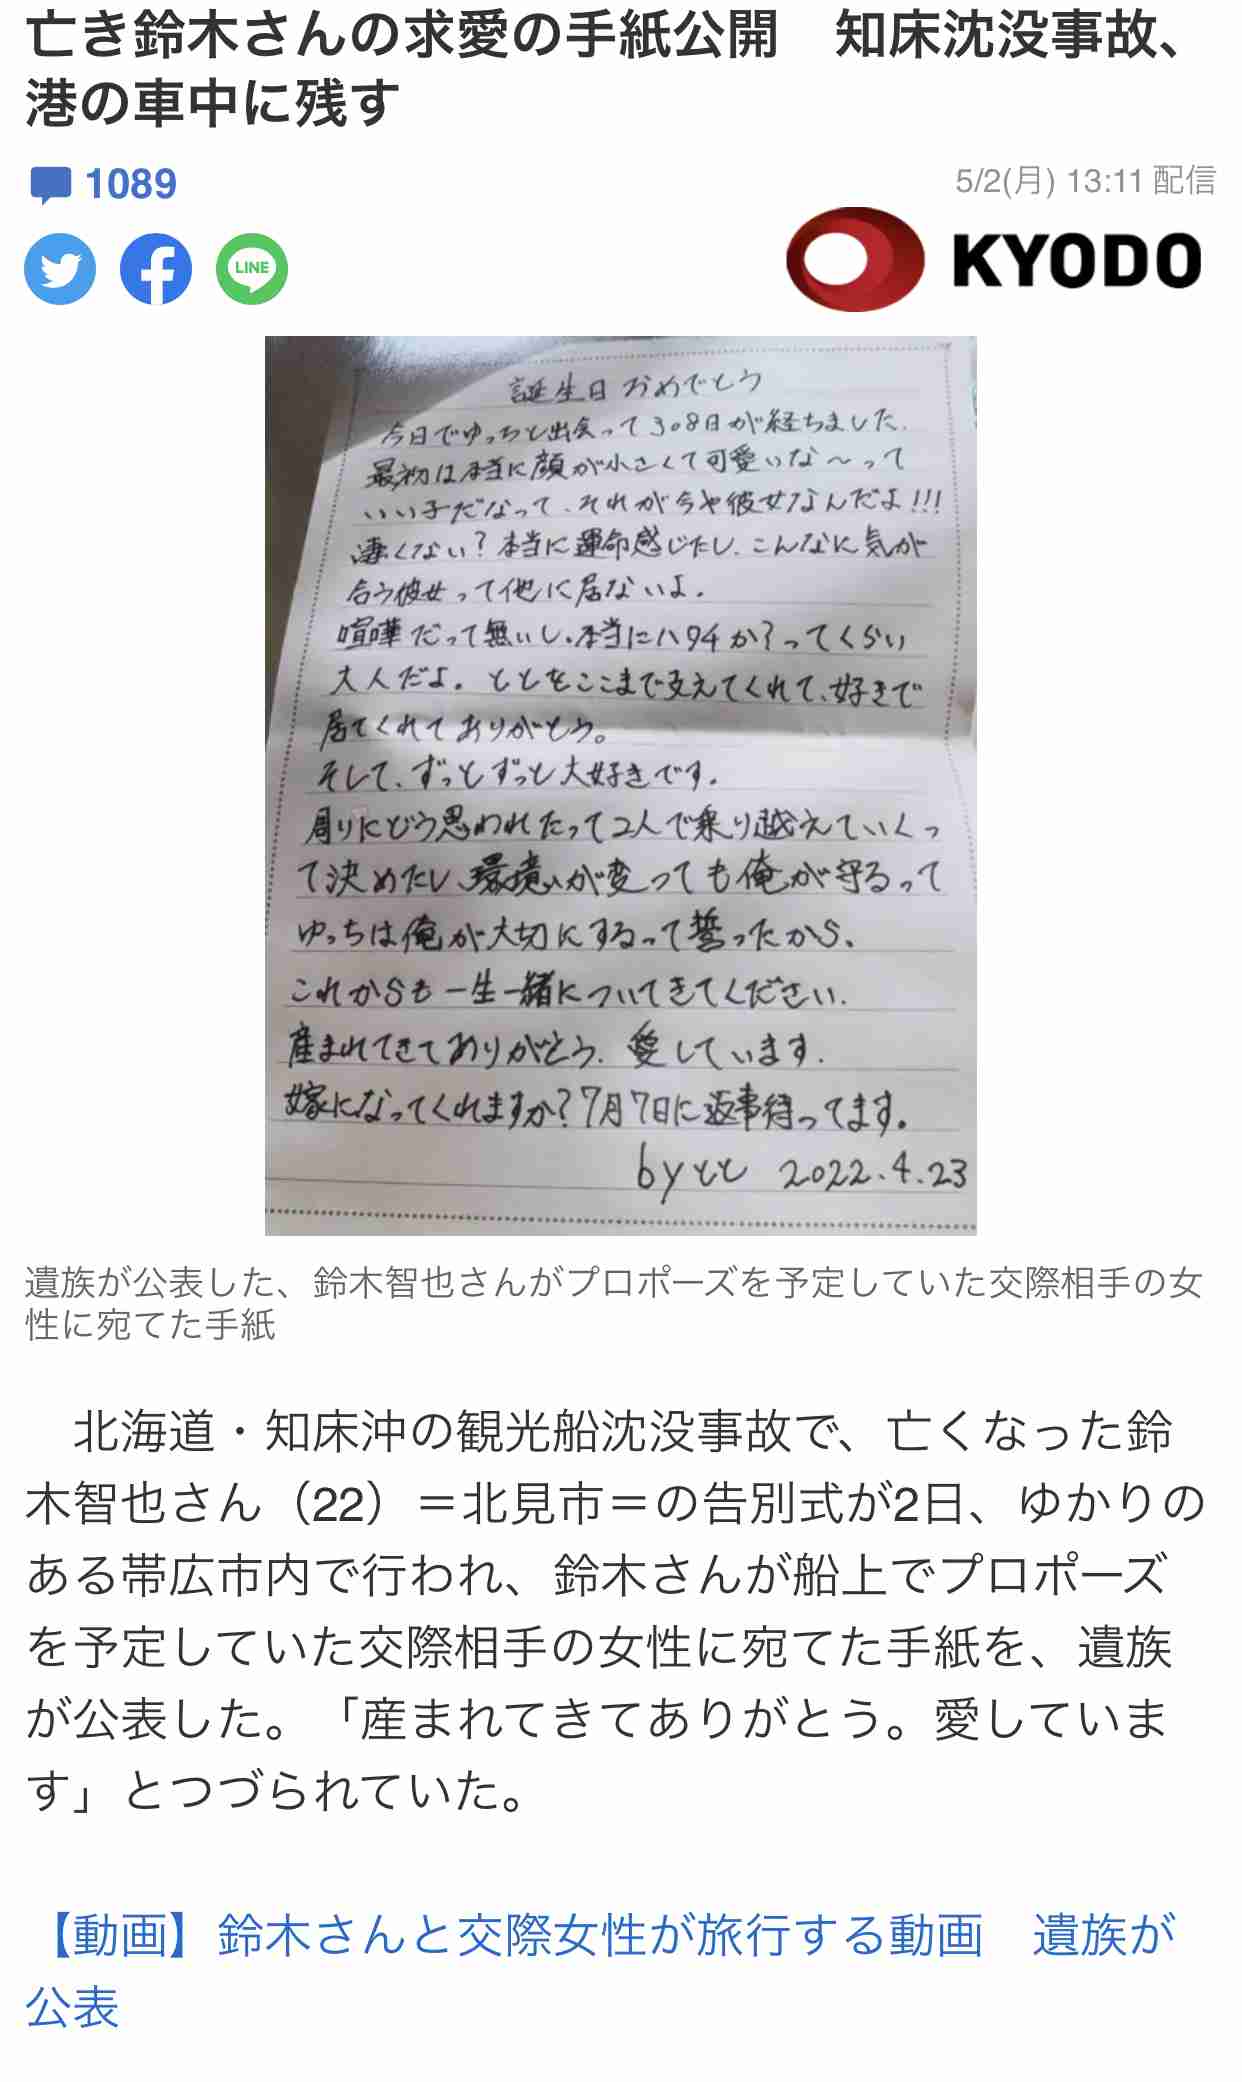 亡き鈴木さんの求愛の手紙公開　知床沈没事故、
港の車中に残す
1089
5/2(月) 13:11 配信
LINE
KYODO
誕生日おめでとう
今日でゆっちと出会って308日が経ちました.
最初は本当に顔が小さくて可愛いな〜って
いい子だなって、それが今や彼女なんだよ!!!
凄くない?本当に運命感じたし、こんなに気が
合う彼女って他に居ないよ.
喧嘩だって無いし、本当にハタチか?ってくらい
大人だよ。ととをここまで支えてくれて、好きで
居てくれてありがとう。
そして、ずっとずっと大好きです.
周りにどう思われたって2人で乗り越えていくっ
て決めたし、環境が変っても俺が守るって
ゆっちは俺が大切にするって誓ったから、
これからも一生一緒についてきてください.
産まれてきてありがとう.愛しています.
嫁になってくれますか?7月7日に返事待ってます。
byとと 2022.4.23
遺族が公表した、鈴木智也さんがプロポーズを予定していた交際相手の女
性に宛てた手紙
北海道・知床沖の観光船沈没事故で、亡くなった鈴
木智也さん（22）＝北見市＝の告別式が2日、ゆかりの
ある帯広市内で行われ、鈴木さんが船上でプロポーズ
を予定していた交際相手の女性に宛てた手紙を、遺族
が公表した。「産まれてきてありがとう。愛していま
す」とつづられていた。
【動画】鈴木さんと交際女性が旅行する動画　遺族が
公表